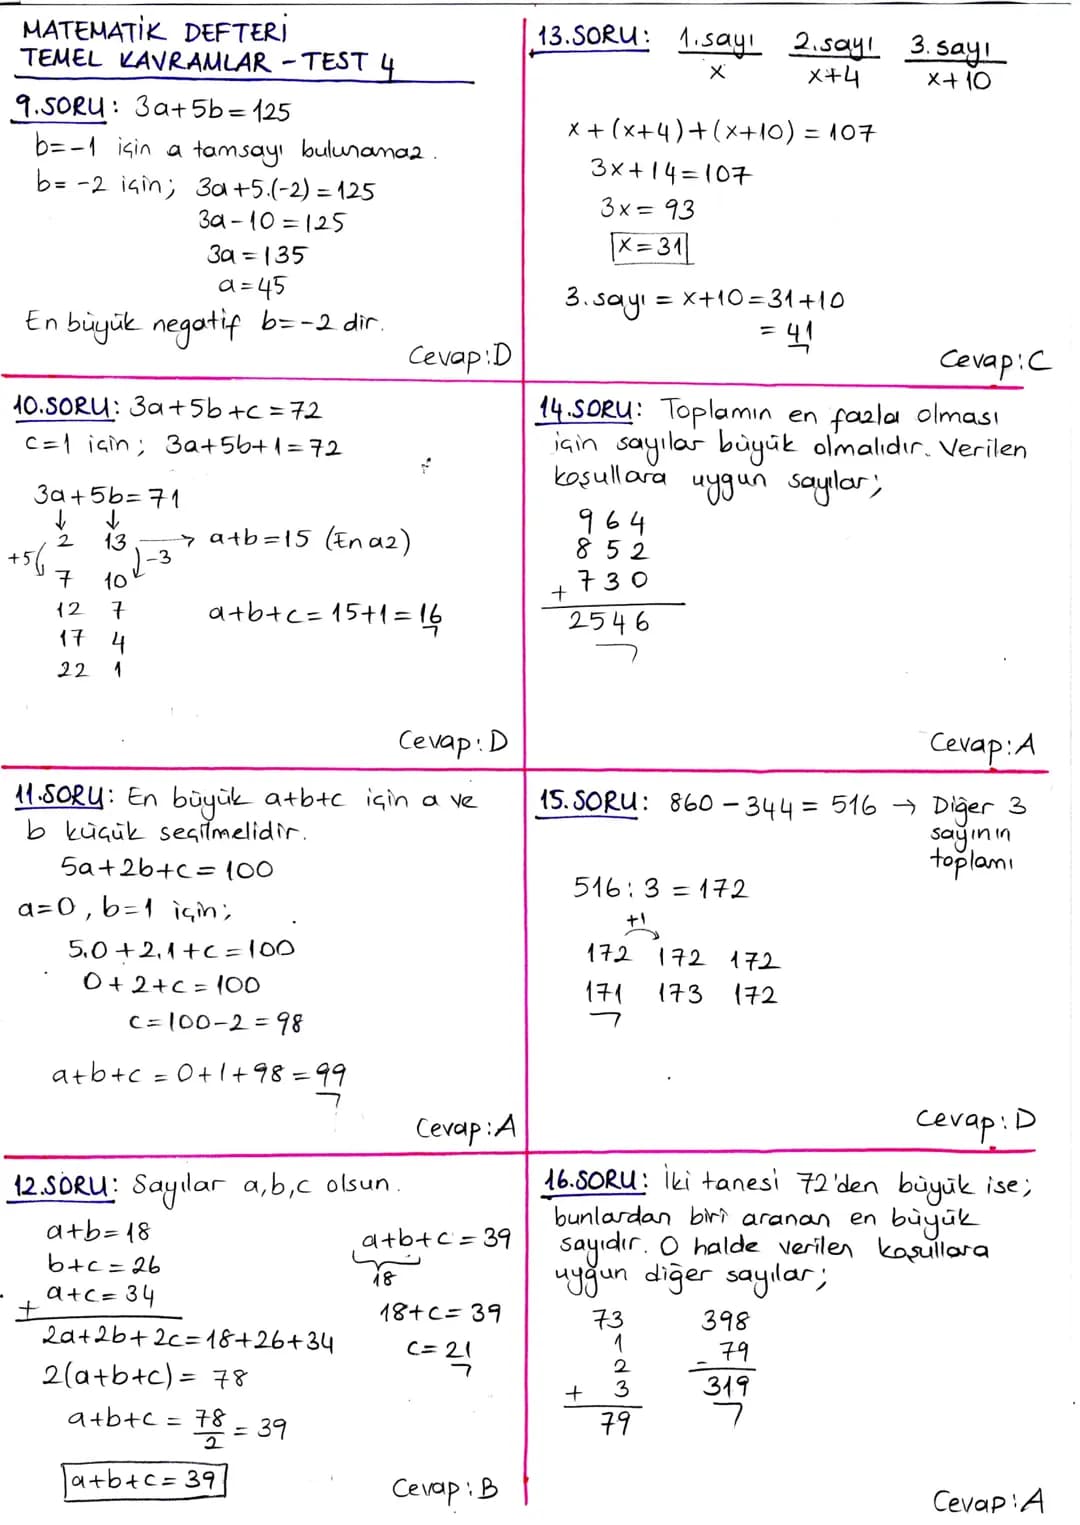 MATEMATİK DEFTERİ
TEMEL KAVRAMLAR - TEST 4
9.SORU: 3a+5b=125
b=-1 için a tamsayı bulunamaz.
b=-2 için; 3a+5.(-2)=125
3a-10=125
3a=135
a=45
En büyük negatif b=-2 dir.
Cevap:D
10.SORU: 3a+5b+c=72
c=1 için; 3a+5b+1=72
3a+5b=71
↓ ↓
2 13 → a+b=15 (En az)
+5 -3
7 10
12 7 a+b+c=15+1=16
17 4
22 1
Cevap:D
11.SORU: En büyük a+b+c için a ve
b küçük seçilmelidir.
5a+2b+c=100
a=0, b=1 için;
5.0+2.1+c=100
0+2+c=100
c=100-2=98
a+b+c=0+1+98=99
Cevap:A
12.SORU: Sayılar a,b,c olsun.
a+b=18
b+c=26
+ a+c=34
2a+2b+2c=18+26+34
2(a+b+c)=78
a+b+c=78/2=39
a+b+c=39
a+b+c=39
18
18+c=39
c=21
Cevap:B
13.SORU: 1.sayı 2.sayı 3.sayı
x x+4 x+10
x+(x+4)+(x+10)=107
3x+14=107
3x=93
x=31
3.sayı=x+10=31+10
=41
Cevap:C
14.SORU: Toplamın en fazla olması
için sayılar büyük olmalıdır. Verilen
koşullara uygun sayılar;
964
852
+ 730
2546
Cevap:A
15.SORU: 860-344=516 → Diğer 3
sayının
toplamı
516:3=172
+1
172 172 172
171 173 172
Cevap:D
16.SORU: İki tanesi 72'den büyük ise;
bunlardan biri aranan en büyük
sayıdır. O halde verilen koşullara
uygun diğer sayılar;
73 398
1 - 79
2 319
+ 3
79
Cevap:A